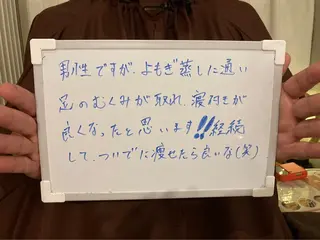 男性ですが、よもぎ蒸しに通い
足のむくみが取れ、寝付きが
良くなったと思います!!継続
して、ついでに痩せたら良いな(笑)